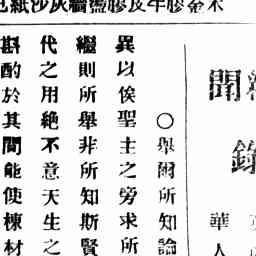 膠牛皮膠 牆灰沙紙
聞
錄
華人
○舉爾所知論
異以俟聖主之旁求所
繼則所舉非所知斯賢
代之用絕不意天生之
斟酌於其間能使棟材